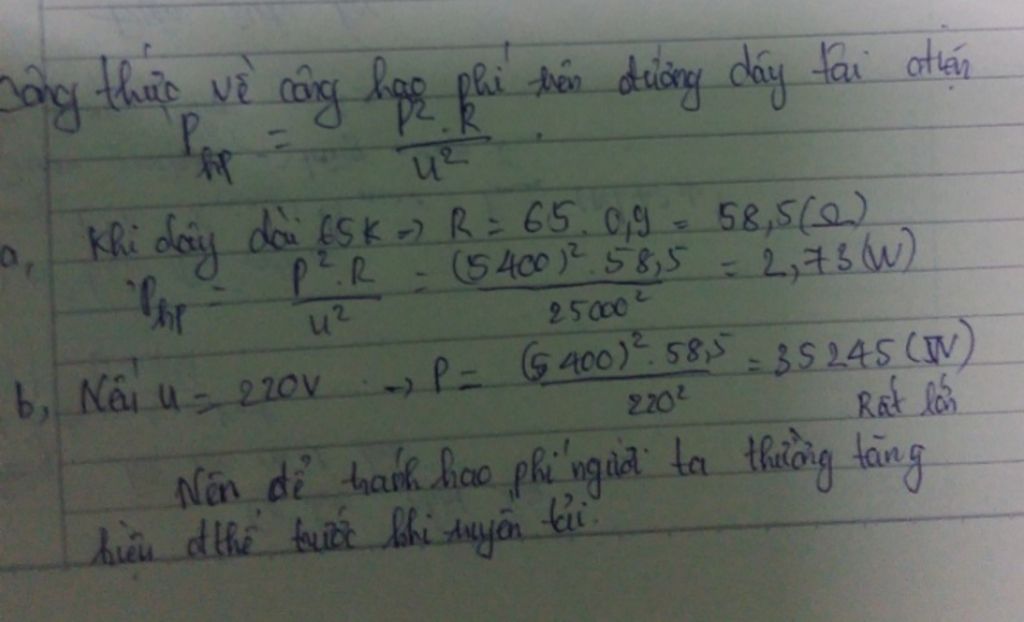 công thức về công hao phí trên đường dây tải điện
P_hp = P². R / U² .
a, Khi dây dài 65K → R = 65 . 0,9 = 58,5 (Ω)
P_hp = P². R / U² = (5400)². 58,5 / 25000² = 2,73 (W)
b, Nếu U = 220V → P = (5400)². 58,5 / 220² = 35245 (W)
Rất lớn
Nên để tránh hao phí người ta thường tăng
hiệu đthế trước khi truyền tải.